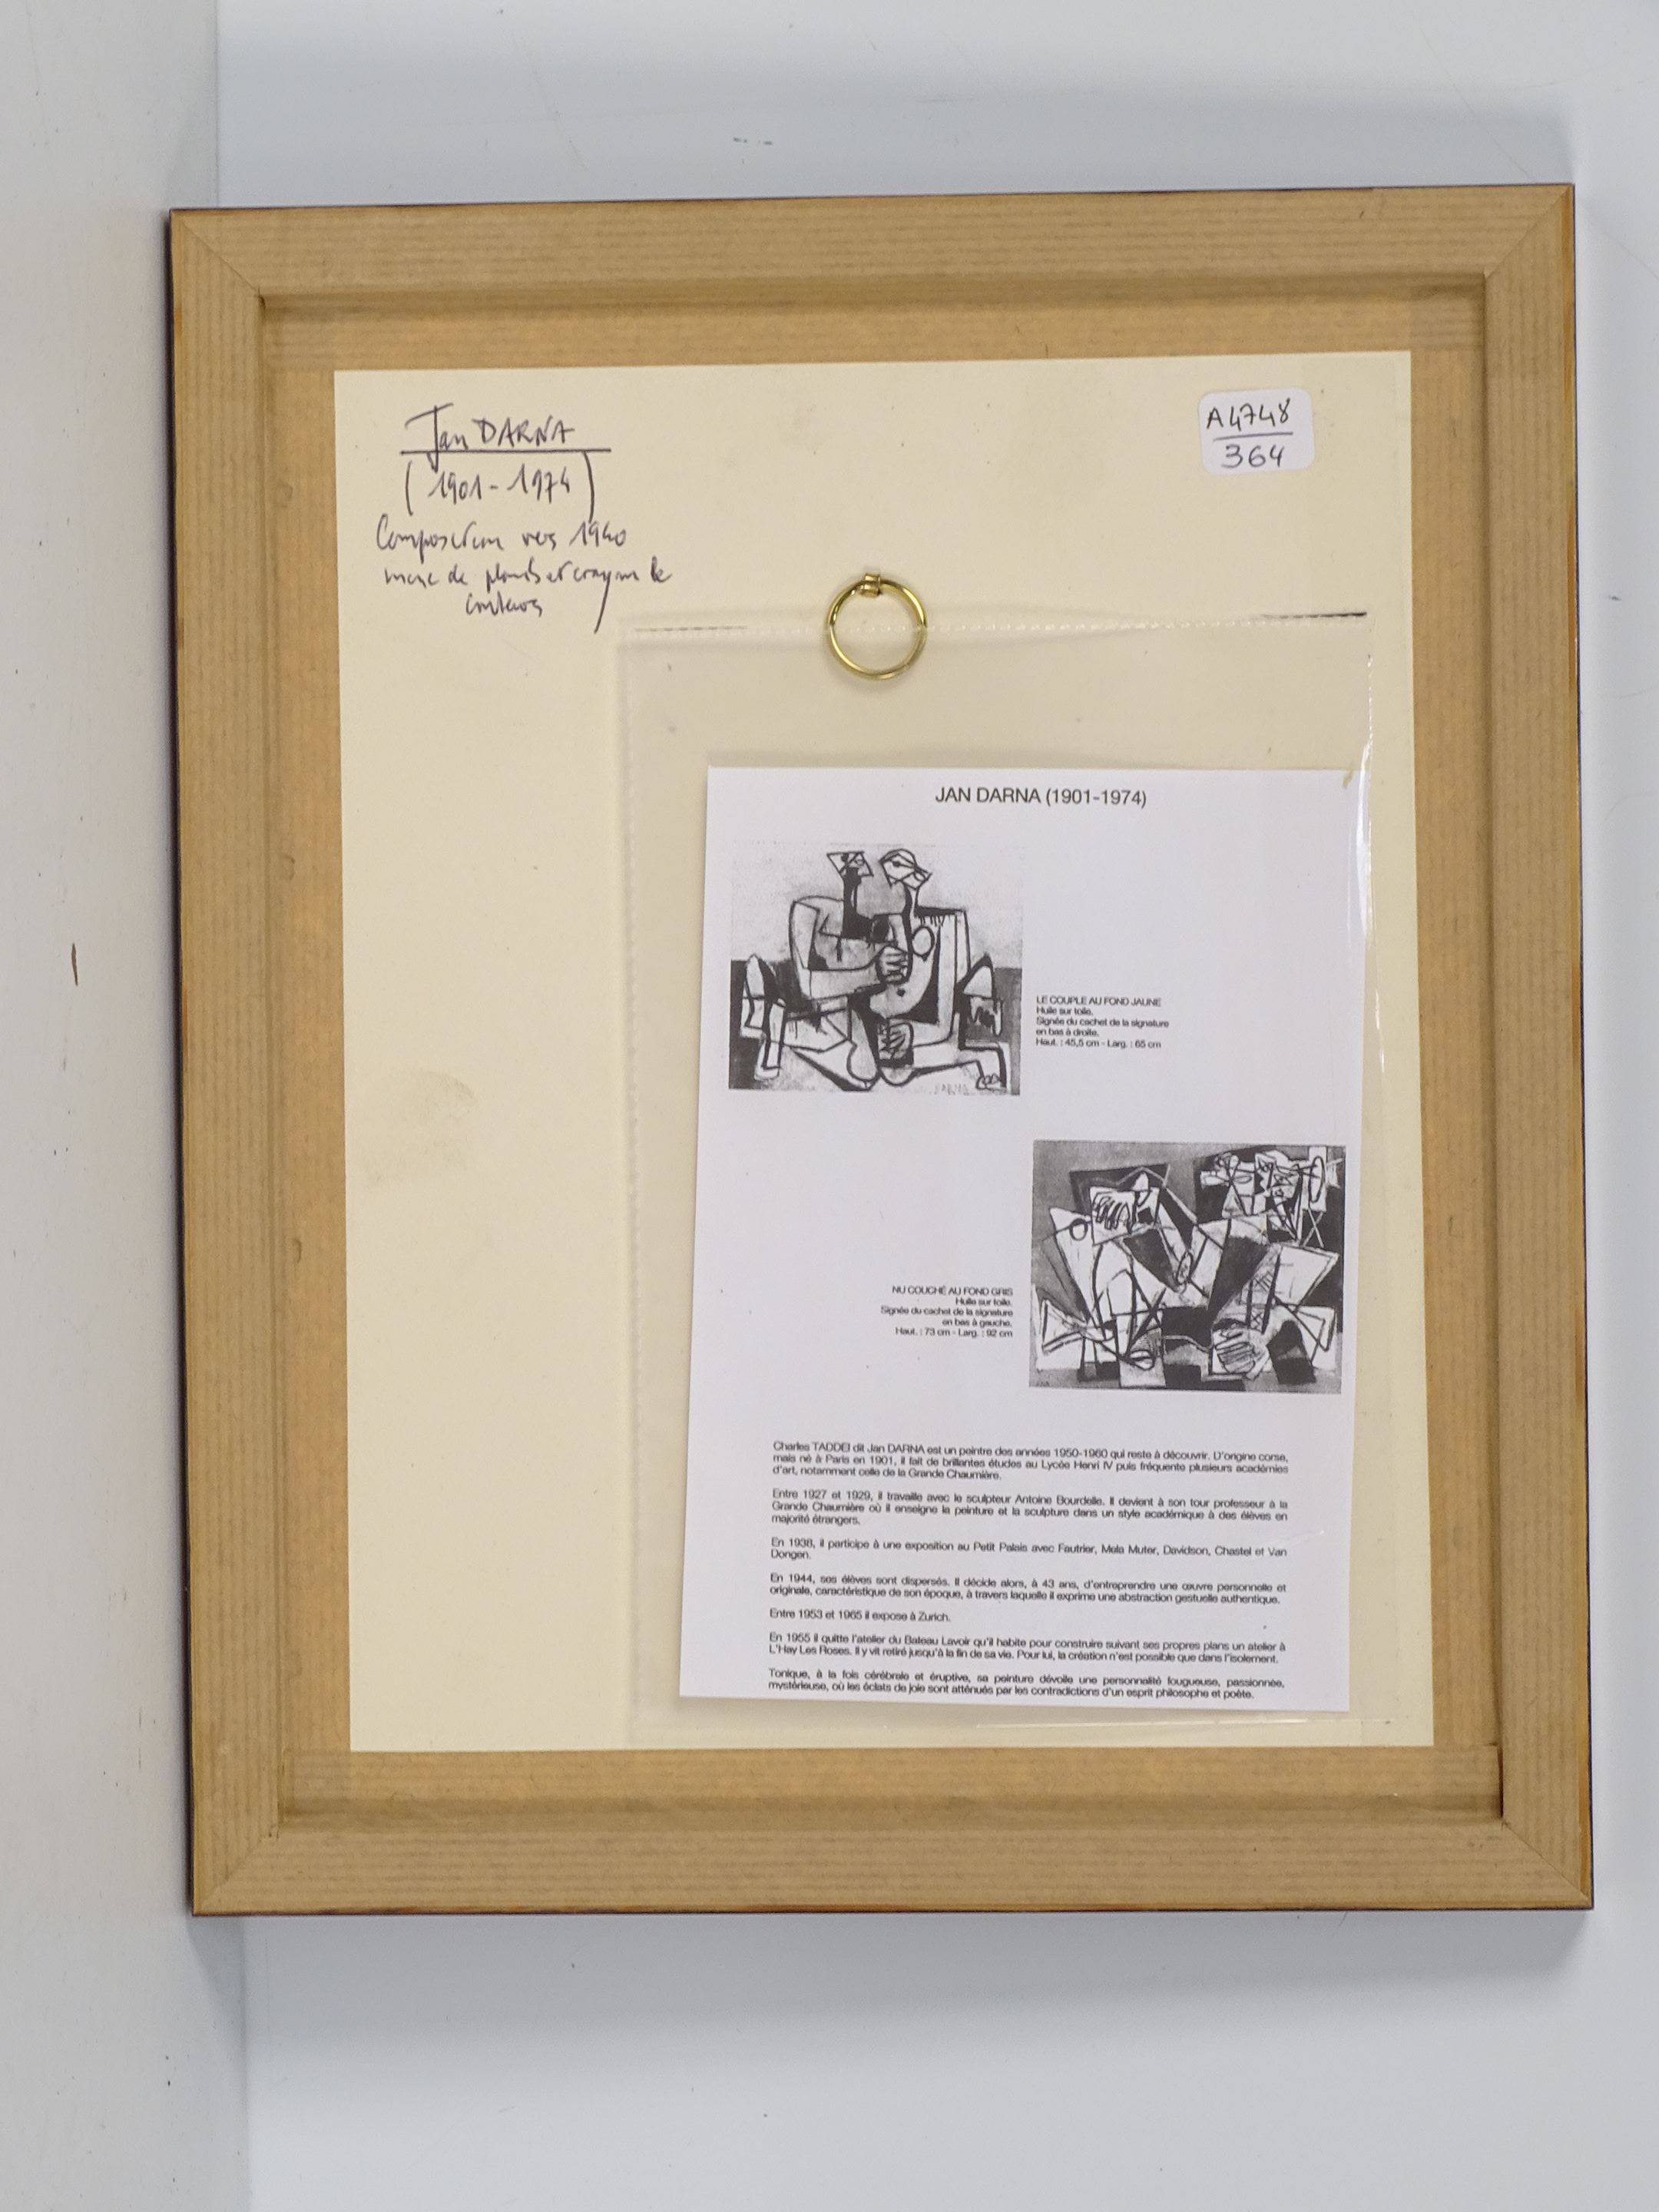 Jan DARNA
(1901-1974)
Composition vers 1940
mine de plomb et crayon de
couleurs
A4748
364
JAN DARNA (1901-1974)
LE COUPLE AU FOND JAUNE
Huile sur toile.
Signée du cachet de la signature
en bas à droite.
Haut. : 45,5 cm - Larg. : 65 cm
NU COUCHÉ AU FOND GRIS
Huile sur toile.
Signée du cachet de la signature
en bas à gauche.
Haut. : 73 cm - Larg. : 92 cm
Charles TADDEI dit Jan DARNA est un peintre des années 1950-1960 qui reste à découvrir. D'origine corse,
mais né à Paris en 1901, il fait de brillantes études au Lycée Henri IV puis fréquente plusieurs académies
d'art, notamment celle de la Grande Chaumière.
Entre 1927 et 1929, il travaille avec le sculpteur Antoine Bourdelle. Il devient à son tour professeur à la
Grande Chaumière où il enseigne la peinture et la sculpture dans un style académique à des élèves en
majorité étrangers.
En 1938, il participe à une exposition au Petit Palais avec Fautrier, Mela Muter, Davidson, Chastel et Van
Dongen.
En 1944, ses élèves sont dispersés. Il décide alors, à 43 ans, d'entreprendre une œuvre personnelle et
originale, caractéristique de son époque, à travers laquelle il exprime une abstraction gestuelle authentique.
Entre 1953 et 1965 il expose à Zurich.
En 1955 il quitte l'atelier du Bateau Lavoir qu'il habite pour construire suivant ses propres plans un atelier à
L'Hay Les Roses. Il y vit retiré jusqu'à la fin de sa vie. Pour lui, la création n'est possible que dans l'isolement.
Tonique, à la fois cérébrale et éruptive, sa peinture dévoile une personnalité fougueuse, passionnée,
mystérieuse, où les éclats de joie sont atténués par les contradictions d'un esprit philosophe et poète.